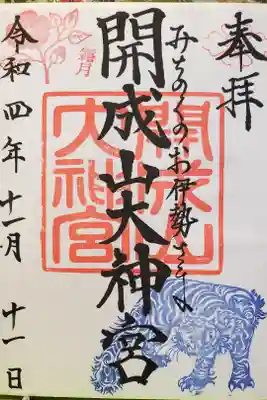 奉拝
みちのくのお伊勢さま
開成山大神宮
開成山
大神宮
霜月
令和四年十一月十一日